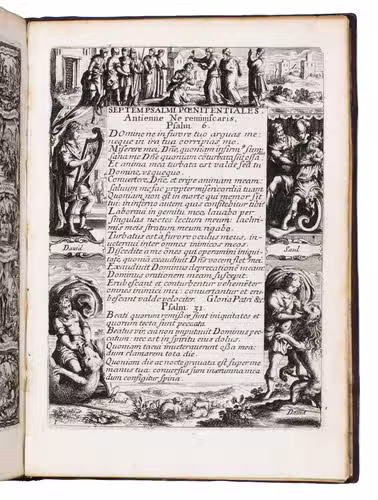 SEPTEM PSALMI POENITENTIALES
Antienne Ne reminiscaris,
Psalm. 6.
Domine ne in furore tuo arguas me:
neque in ira tua corripias me.
Miserere mei, Dñe, quoniam infirm9 sum:
sana me Dñe quoniam coturbata sut ossa
Et anima mea turbata est valde sed tu
Domine, vsquequo.
Conuertere Dñe, et eripe animam meam:
saluum me fac propter misericordiã tuam
Quoniam non est in morte qui memor sit
tui: in inferno autem quis confitebitur tibi?
Laboraui in gemitu meo, lauabo per
singulas noctes lectum meum: lachri-
mis meis stratum meum rigabo.
Turbatus est a furore oculus meus, in-
ueteraui inter omnes inimicos meos.
Discedite a me õnes qui operamini iniqui-
tatẽ, quoniã exaudiuit Dñs vocem flet9 mei
Exaudiuit Dominus deprecationẽ meam
Dominus orationem meam suscepit.
Erubescant et conturbentur vehemẽter
omnes inimici mei: conuertantur et eru-
bescant valde velociter. Gloria Patri &c
Psalm 31.
Beati quorum remissæ sunt iniquitates et
quorum tecta sunt peccata.
Beatus vir, cui non imputauit Dominus pec-
catum: nec est in spiritu eius dolus.
Quoniam tacui inueterauerunt ossa mea:
dum clamarem tota die.
Quoniam die ac nocte grauata est super me
manus tua: conuersus sum in ærumna mea
dum configitur spina.
Dauid
Saul
Dauid